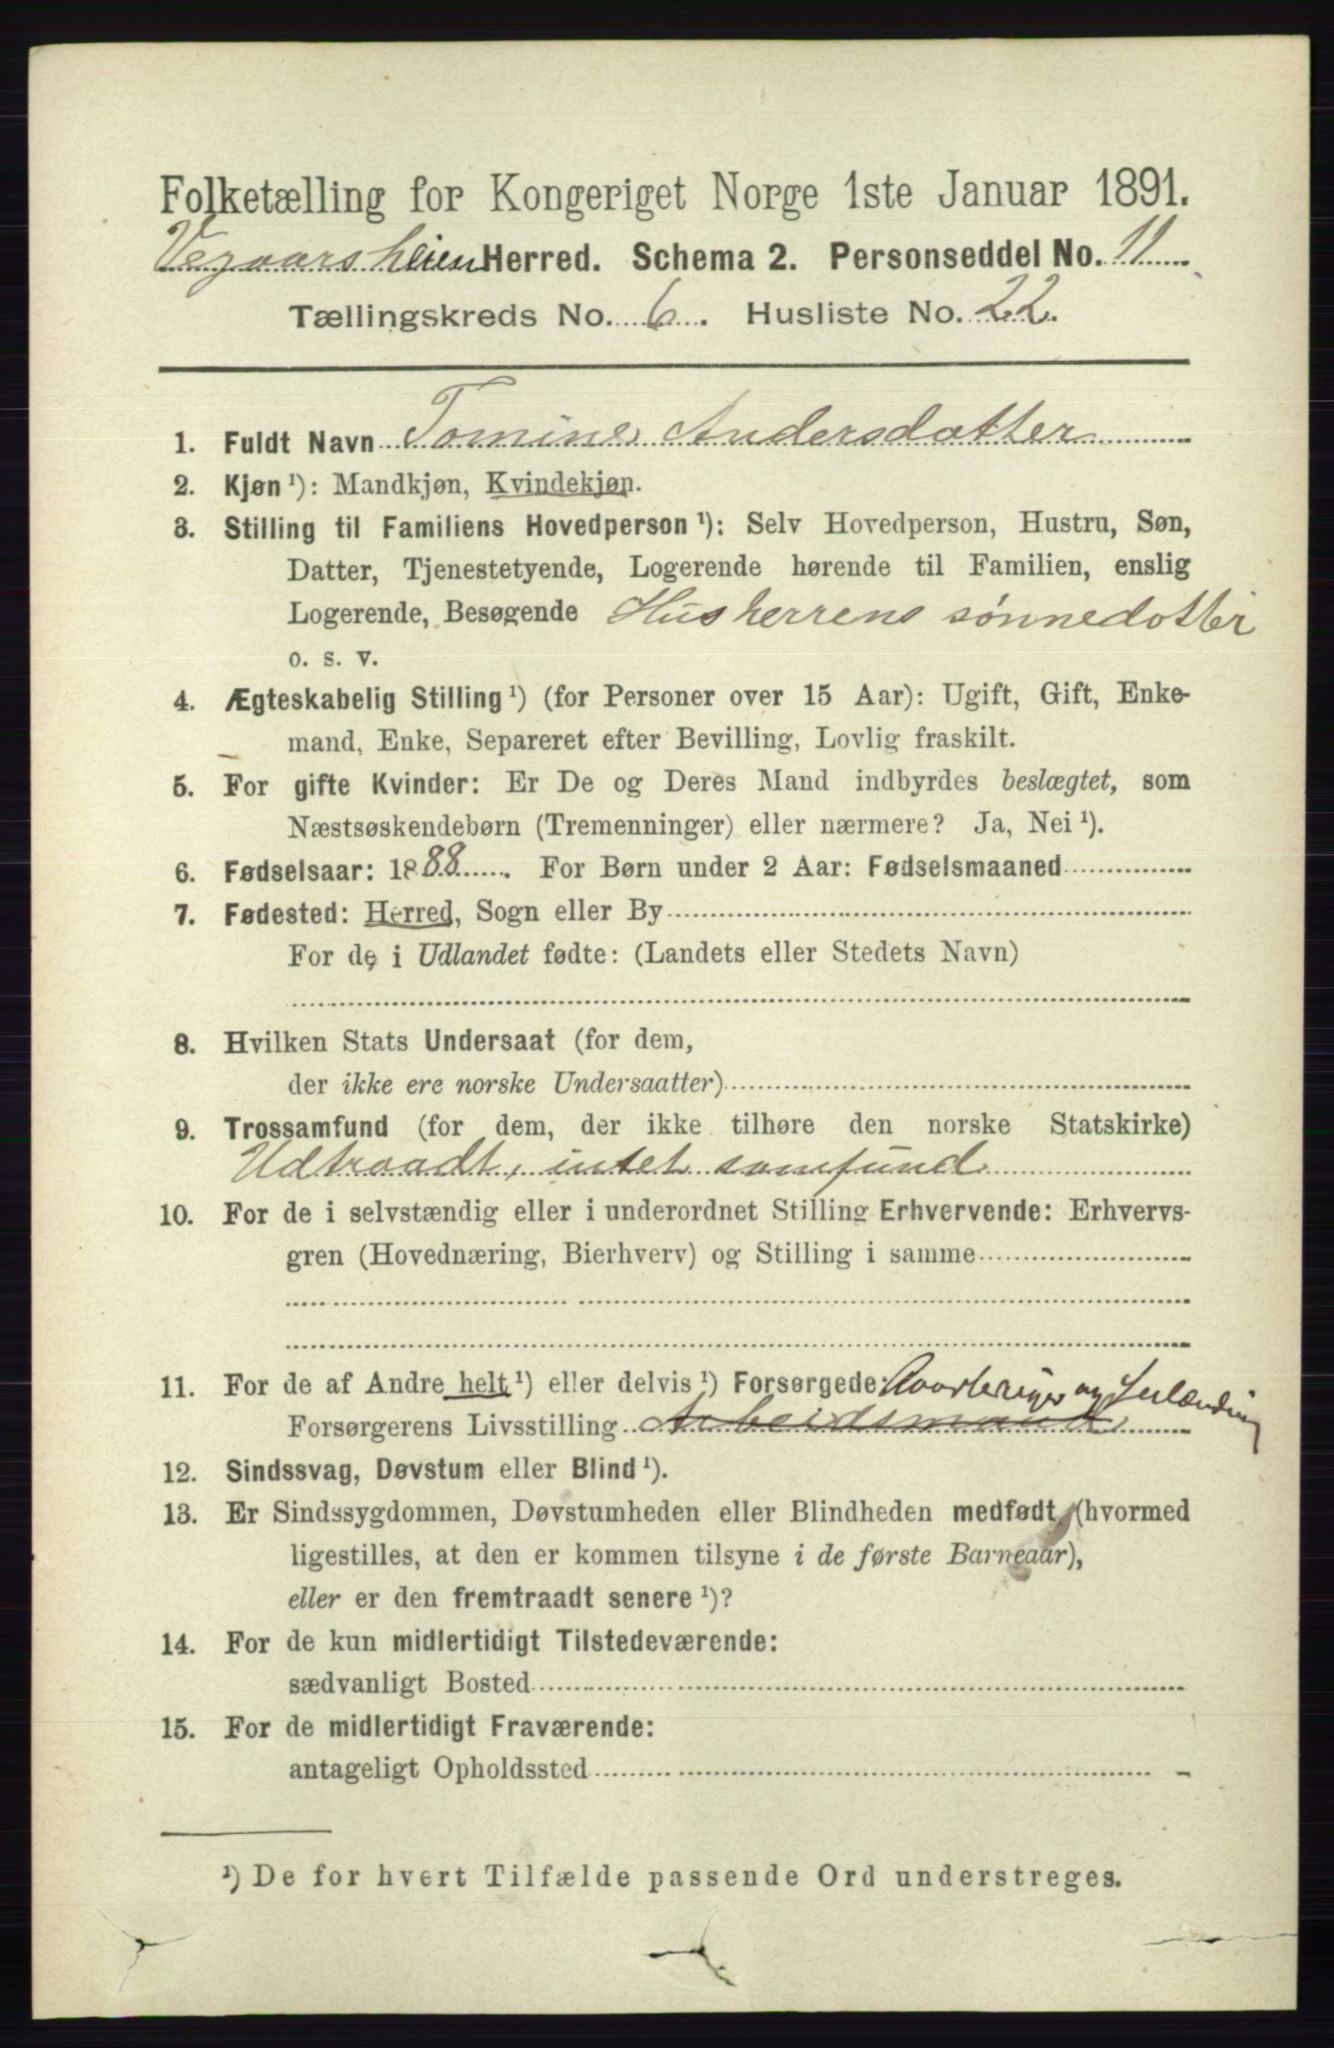 Folketælling for Kongeriget Norge 1ste Januar 1891.
Vegaarsheien Herred. Schema 2. Personseddel No. 11
Tællingskreds No. 6. Husliste No. 22.
1. Fuldt Navn Tomine Andersdatter
2. Kjøn ¹): Mandkjøn, Kvindekjøn.
3. Stilling til Familiens Hovedperson ¹): Selv Hovedperson, Hustru, Søn,
Datter, Tjenestetyende, Logerende hørende til Familien, enslig
Logerende, Besøgende Husherrens sønnedotter
o. s. v.
4. Ægteskabelig Stilling ¹) (for Personer over 15 Aar): Ugift, Gift, Enke-
mand, Enke, Separeret efter Bevilling, Lovlig fraskilt.
5. For gifte Kvinder: Er De og Deres Mand indbyrdes beslægtet, som
Næstsøskendebørn (Tremenninger) eller nærmere? Ja, Nei ¹).
6. Fødselsaar: 1888. For Børn under 2 Aar: Fødselsmaaned
7. Fødested: Herred, Sogn eller By
For de i Udlandet fødte: (Landets eller Stedets Navn)
8. Hvilken Stats Undersaat (for dem,
der ikke ere norske Undersaatter)
9. Trossamfund (for dem, der ikke tilhøre den norske Statskirke)
Udtraadt, intet samfund
10. For de i selvstændig eller i underordnet Stilling Erhvervende: Erhvervs-
gren (Hovednæring, Bierhverv) og Stilling i samme
11. For de af Andre helt ¹) eller delvis ¹) Forsørgede:
Forsørgerens Livsstilling Arbeidsmand
12. Sindssvag, Døvstum eller Blind ¹).
13. Er Sindssygdommen, Døvstumheden eller Blindheden medfødt (hvormed
ligestilles, at den er kommen tilsyne i de første Barneaar),
eller er den fremtraadt senere ¹)?
14. For de kun midlertidigt Tilstedeværende:
sædvanligt Bosted
15. For de midlertidigt Fraværende:
antageligt Opholdssted
¹) De for hvert Tilfælde passende Ord understreges.